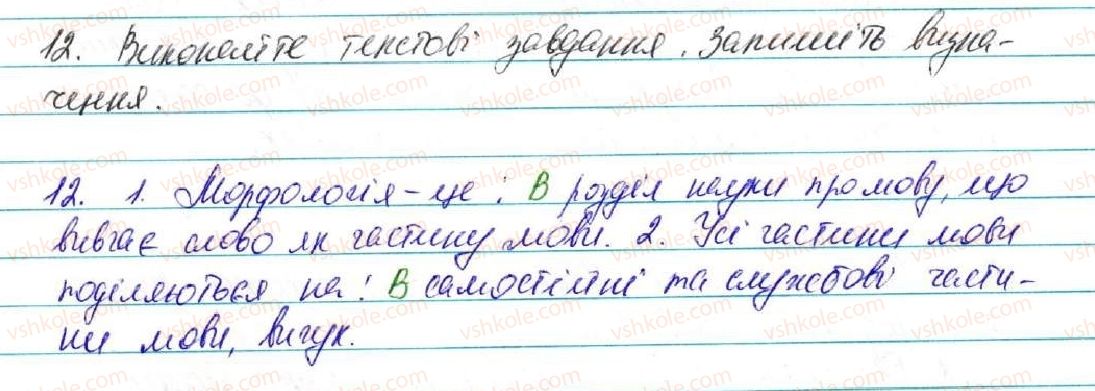 12. Виконайте тестові завдання. Запишіть визна-
чення.
12. 1. Морфологія – це: В розділ науки про мову, що
вивчає слово як частину мови. 2. Усі частини мови
поділяються на: В самостійні та службові части-
ни мови, вигук.